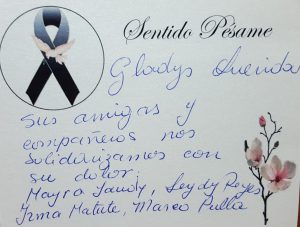 Sentido Pésame
Gladys Querida
Sus amigas y
compañeros nos
Solidarizamos con
su dolor:
Mayra Jandy, Leydy Reyes
Irma Matute, Marco Pulla